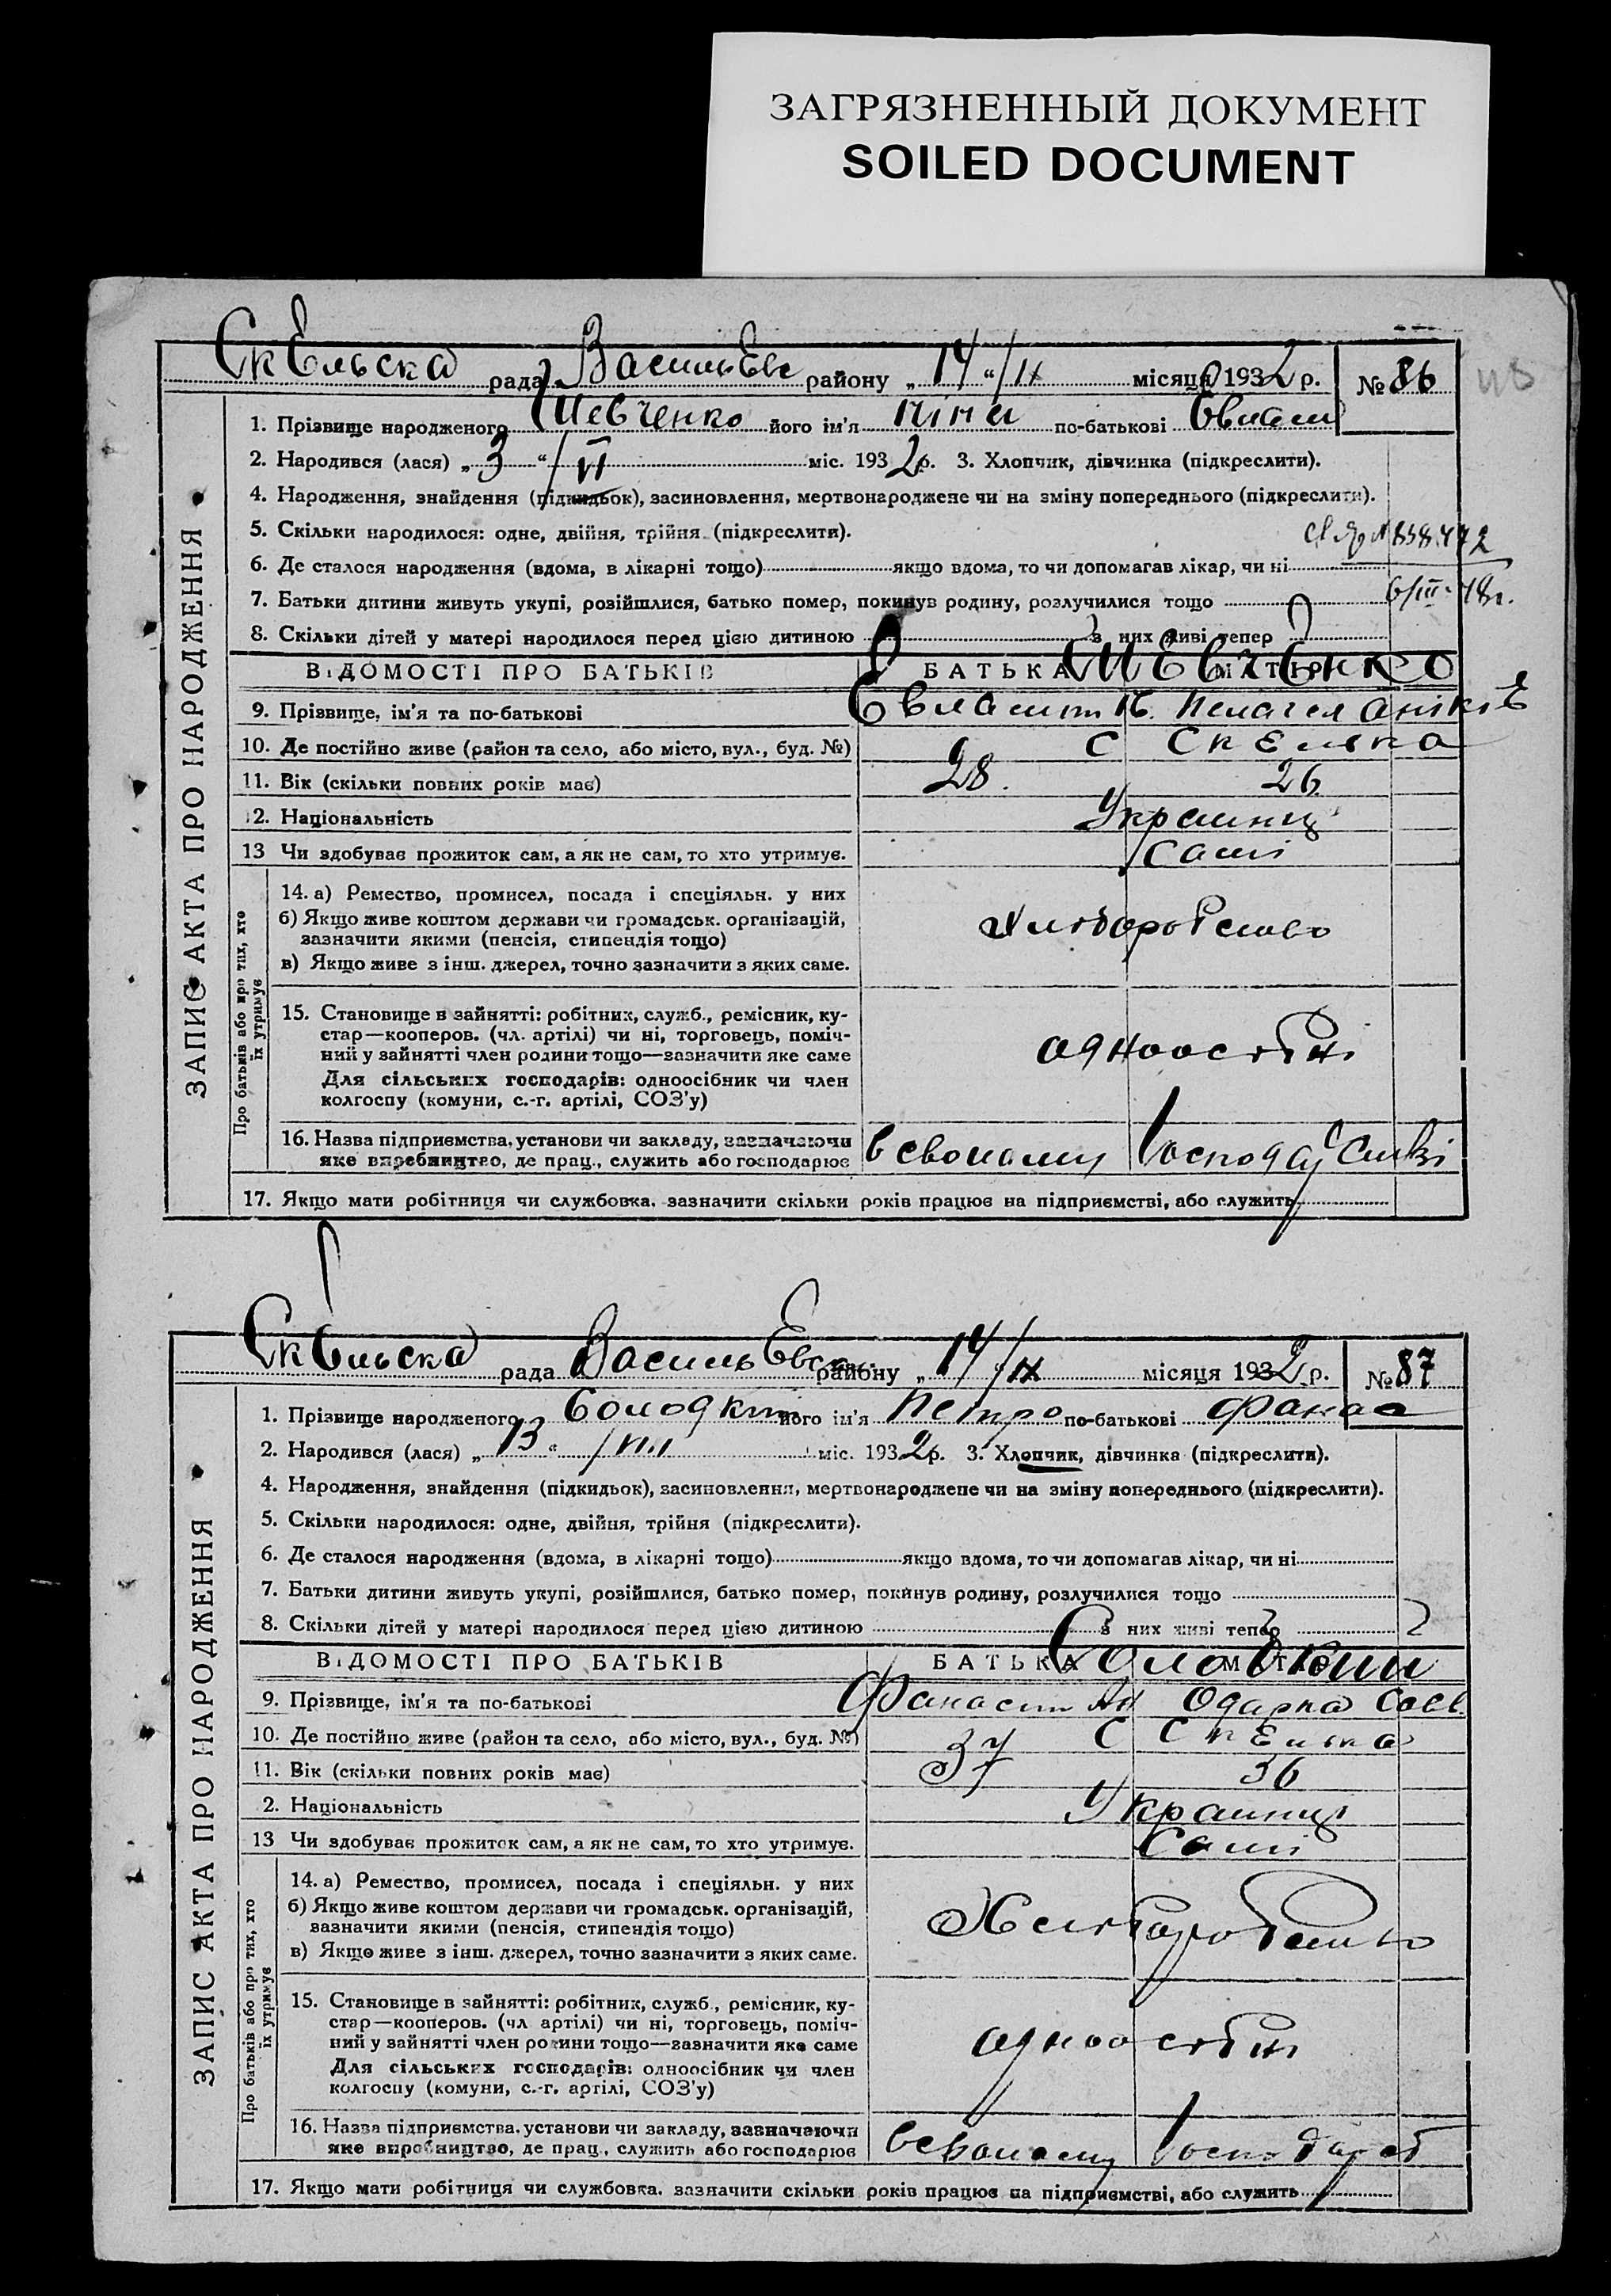 ЗАГРЯЗНЕННЫЙ ДОКУМЕНТ
SOILED DOCUMENT
Скельска рада Васильевс району „14“/IX місяця 1932 р. № 86
1. Прізвище народженого Шевченко його ім'я по-батькові
2. Народився (лася) „3“/VI міс. 1932 р. 3. Хлопчик, дівчинка (підкреслити).
4. Народження, знайдення (підкидьок), засиновлення, мертвонароджене чи на зміну попереднього (підкреслити).
5. Скільки народилося: одне, двійня, трійня (підкреслити).
6. Де сталося народження (вдома, в лікарні тощо) якщо вдома, то чи допомагав лікар, чи ні
6/III-48г.
7. Батьки дитини живуть укупі, розійшлися, батько помер, покинув родину, розлучилися тощо
8. Скільки дітей у матері народилося перед цією дитиною з них живі тепер
ВІДОМОСТІ ПРО БАТЬКІВ БАТЬКА МАТІР Шевченко
9. Прізвище, ім'я та по-батькові
10. Де постійно живе (район та село, або місто, вул., буд. №) С Скелька
11. Вік (скільки повних років має) 28. 26
12. Національність Украинц
13 Чи здобуває прожиток сам, а як не сам, то хто утримує. самі
14. а) Ремество, промисел, посада і спеціяльн. у них
б) Якщо живе коштом держави чи громадськ. організацій,
зазначити якими (пенсія, стипендія тощо)
в) Якщо живе з інш. джерел, точно зазначити з яких саме.
15. Становище в зайнятті: робітник, служб., ремісник, ку-
стар—кооперов. (чл. артілі) чи ні, торговець, поміч-
ний у зайнятті член родини тощо—зазначити яке саме
Для сільських господарів: одноосібник чи член
колгоспу (комуни, с.-г. артілі, СОЗ'у)
одноосібн
16. Назва підприємства, установи чи закладу, зазначаючи
яке виробництво, де прац., служить або господарює
17. Якщо мати робітниця чи службовка, зазначити скільки років працює на підприємстві, або служить
ЗАПИС АКТА ПРО НАРОДЖЕННЯ
Про батьків або про тих, хто
їх утримує
Скельска рада Васильевськ району „14“/IX місяця 1932 р. № 87
1. Прізвище народженого його ім'я Петро по-батькові Фанас
2. Народився (лася) „13“/VIII міс. 1932 р. 3. Хлопчик, дівчинка (підкреслити).
4. Народження, знайдення (підкидьок), засиновлення, мертвонароджене чи на зміну попереднього (підкреслити).
5. Скільки народилося: одне, двійня, трійня (підкреслити).
6. Де сталося народження (вдома, в лікарні тощо) якщо вдома, то чи допомагав лікар, чи ні
7. Батьки дитини живуть укупі, розійшлися, батько помер, покинув родину, розлучилися тощо
8. Скільки дітей у матері народилося перед цією дитиною з них живі тепер
ВІДОМОСТІ ПРО БАТЬКІВ БАТЬКА МАТІР
9. Прізвище, ім'я та по-батькові Одарка
10. Де постійно живе (район та село, або місто, вул., буд. №) С Скелька
11. Вік (скільки повних років має) 37 36
2. Національність Украинц
13 Чи здобуває прожиток сам, а як не сам, то хто утримує. Самі
14. а) Ремество, промисел, посада і спеціяльн. у них
б) Якщо живе коштом держави чи громадськ. організацій,
зазначити якими (пенсія, стипендія тощо)
в) Якщо живе з інш. джерел, точно зазначити з яких саме.
15. Становище в зайнятті: робітник, служб., ремісник, ку-
стар—кооперов. (чл. артілі) чи ні, торговець, поміч-
ний у зайнятті член родини тощо—зазначити яке саме
Для сільських господарів: одноосібник чи член
колгоспу (комуни, с.-г. артілі, СОЗ'у)
одноосібн
16. Назва підприємства, установи чи закладу, зазначаючи
яке виробництво, де прац., служить або господарює
17. Якщо мати робітниця чи службовка, зазначити скільки років працює на підприємстві, або служить
ЗАПИС АКТА ПРО НАРОДЖЕННЯ
Про батьків або про тих, хто
їх утримує